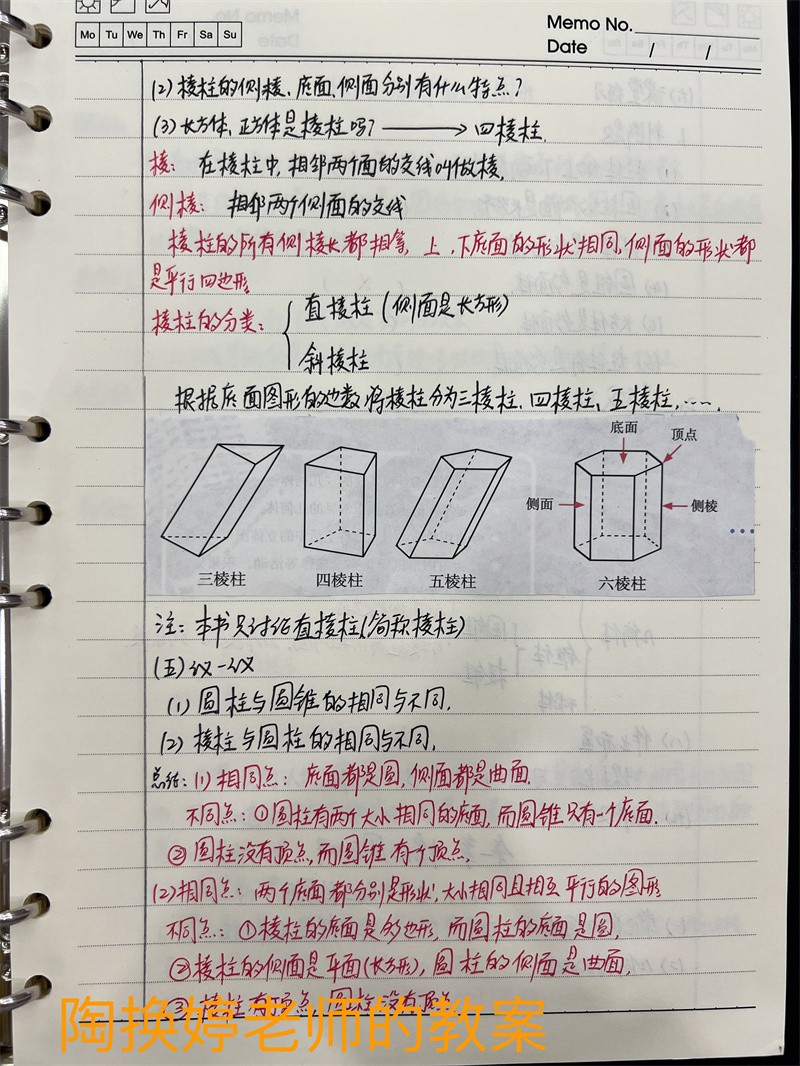 Memo No.
Mo Tu We Th Fr Sa Su
Date / /
(2) 棱柱的侧棱、底面、侧面分别有什么特点?
(3) 长方体、正方体是棱柱吗? → 四棱柱.
棱: 在棱柱中, 相邻两个面的交线叫做棱.
侧棱: 相邻两个侧面的交线
棱柱的所有侧棱长都相等, 上、下底面的形状相同, 侧面的形状都
是平行四边形.
棱柱的分类: { 直棱柱 (侧面是长方形)
斜棱柱
根据底面图形的边数将棱柱分为三棱柱、四棱柱、五棱柱,……
底面
顶点
侧面
侧棱
三棱柱 四棱柱 五棱柱 六棱柱
注: 本书只讨论直棱柱(简称棱柱)
(五) 议一议
(1) 圆柱与圆锥的相同与不同.
(2) 棱柱与圆柱的相同与不同.
总结: (1) 相同点: 底面都是圆, 侧面都是曲面.
不同点: ①圆柱有两个大小相同的底面, 而圆锥只有一个底面.
② 圆柱没有顶点, 而圆锥有一个顶点.
(2) 相同点: 两个底面都分别是形状、大小相同且相互平行的图形
不同点: ①棱柱的底面是多边形, 而圆柱的底面是圆.
②棱柱的侧面是平面(长方形), 圆柱的侧面是曲面.
③棱柱有顶点, 圆柱没有顶点
陶换婷老师的教案